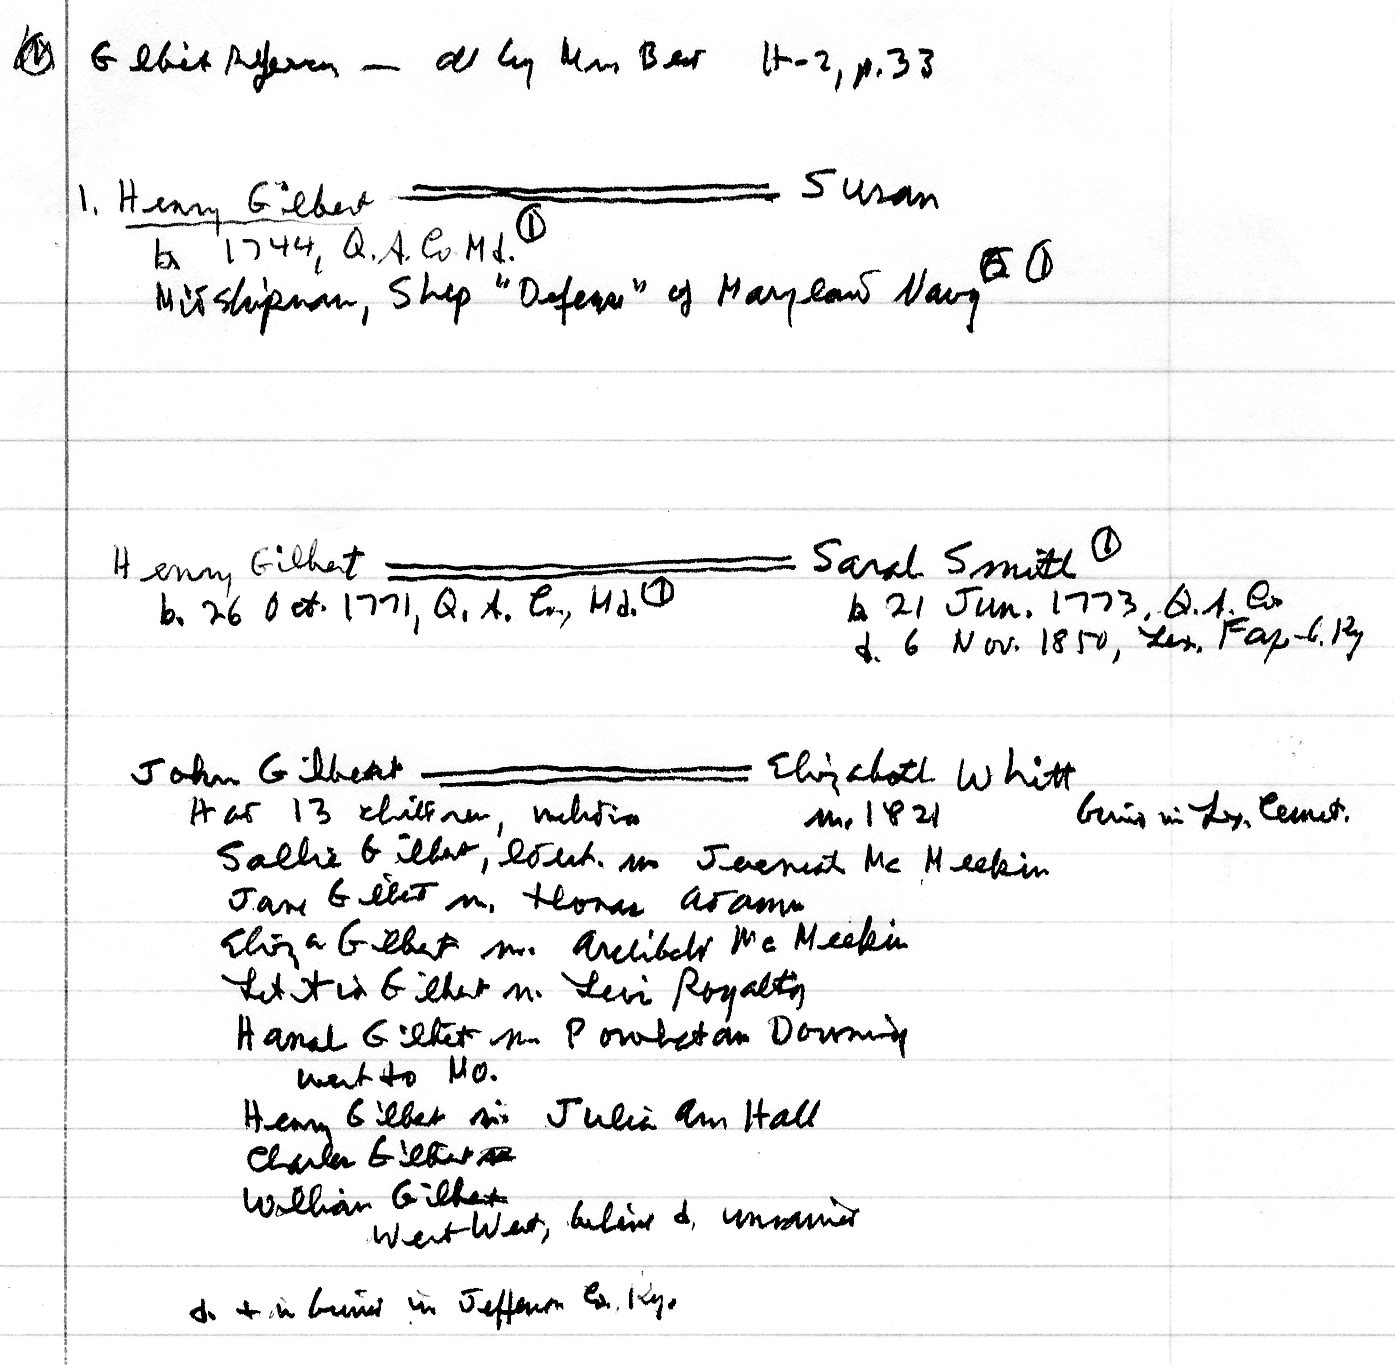 ① Gilbert — by Mrs Best H-2, p.33
1. Henry Gilbert Susan
b. 1744, Q.A. Co Md. ①
Midshipman, Ship "Defense" of Maryland Navy ①
Henry Gilbert Sarah Smith ①
b. 26 Oct. 1771, Q.A. Co., Md. ① b 21 Jun. 1773, Q.A. Co
d. 6 Nov. 1850, Lex. Fay. C. Ky
John Gilbert Elizabeth Whitt
Had 13 children, m. 1821 buried in Lex. Cemet.
Sallie Gilbert, eldest. m Jeremiah McMeekin
Jane Gilbert m. Thomas Adams
Eliza Gilbert m. Archibald McMeekin
Letitia Gilbert m. Levi Royalty
Hanah Gilbert m Powhatan Downing
went to Mo.
Henry Gilbert m Julia Ann Hall
Charles Gilbert
William Gilbert
Went West, believe d. unmarried
d. + is buried in Jefferson Co. Ky.